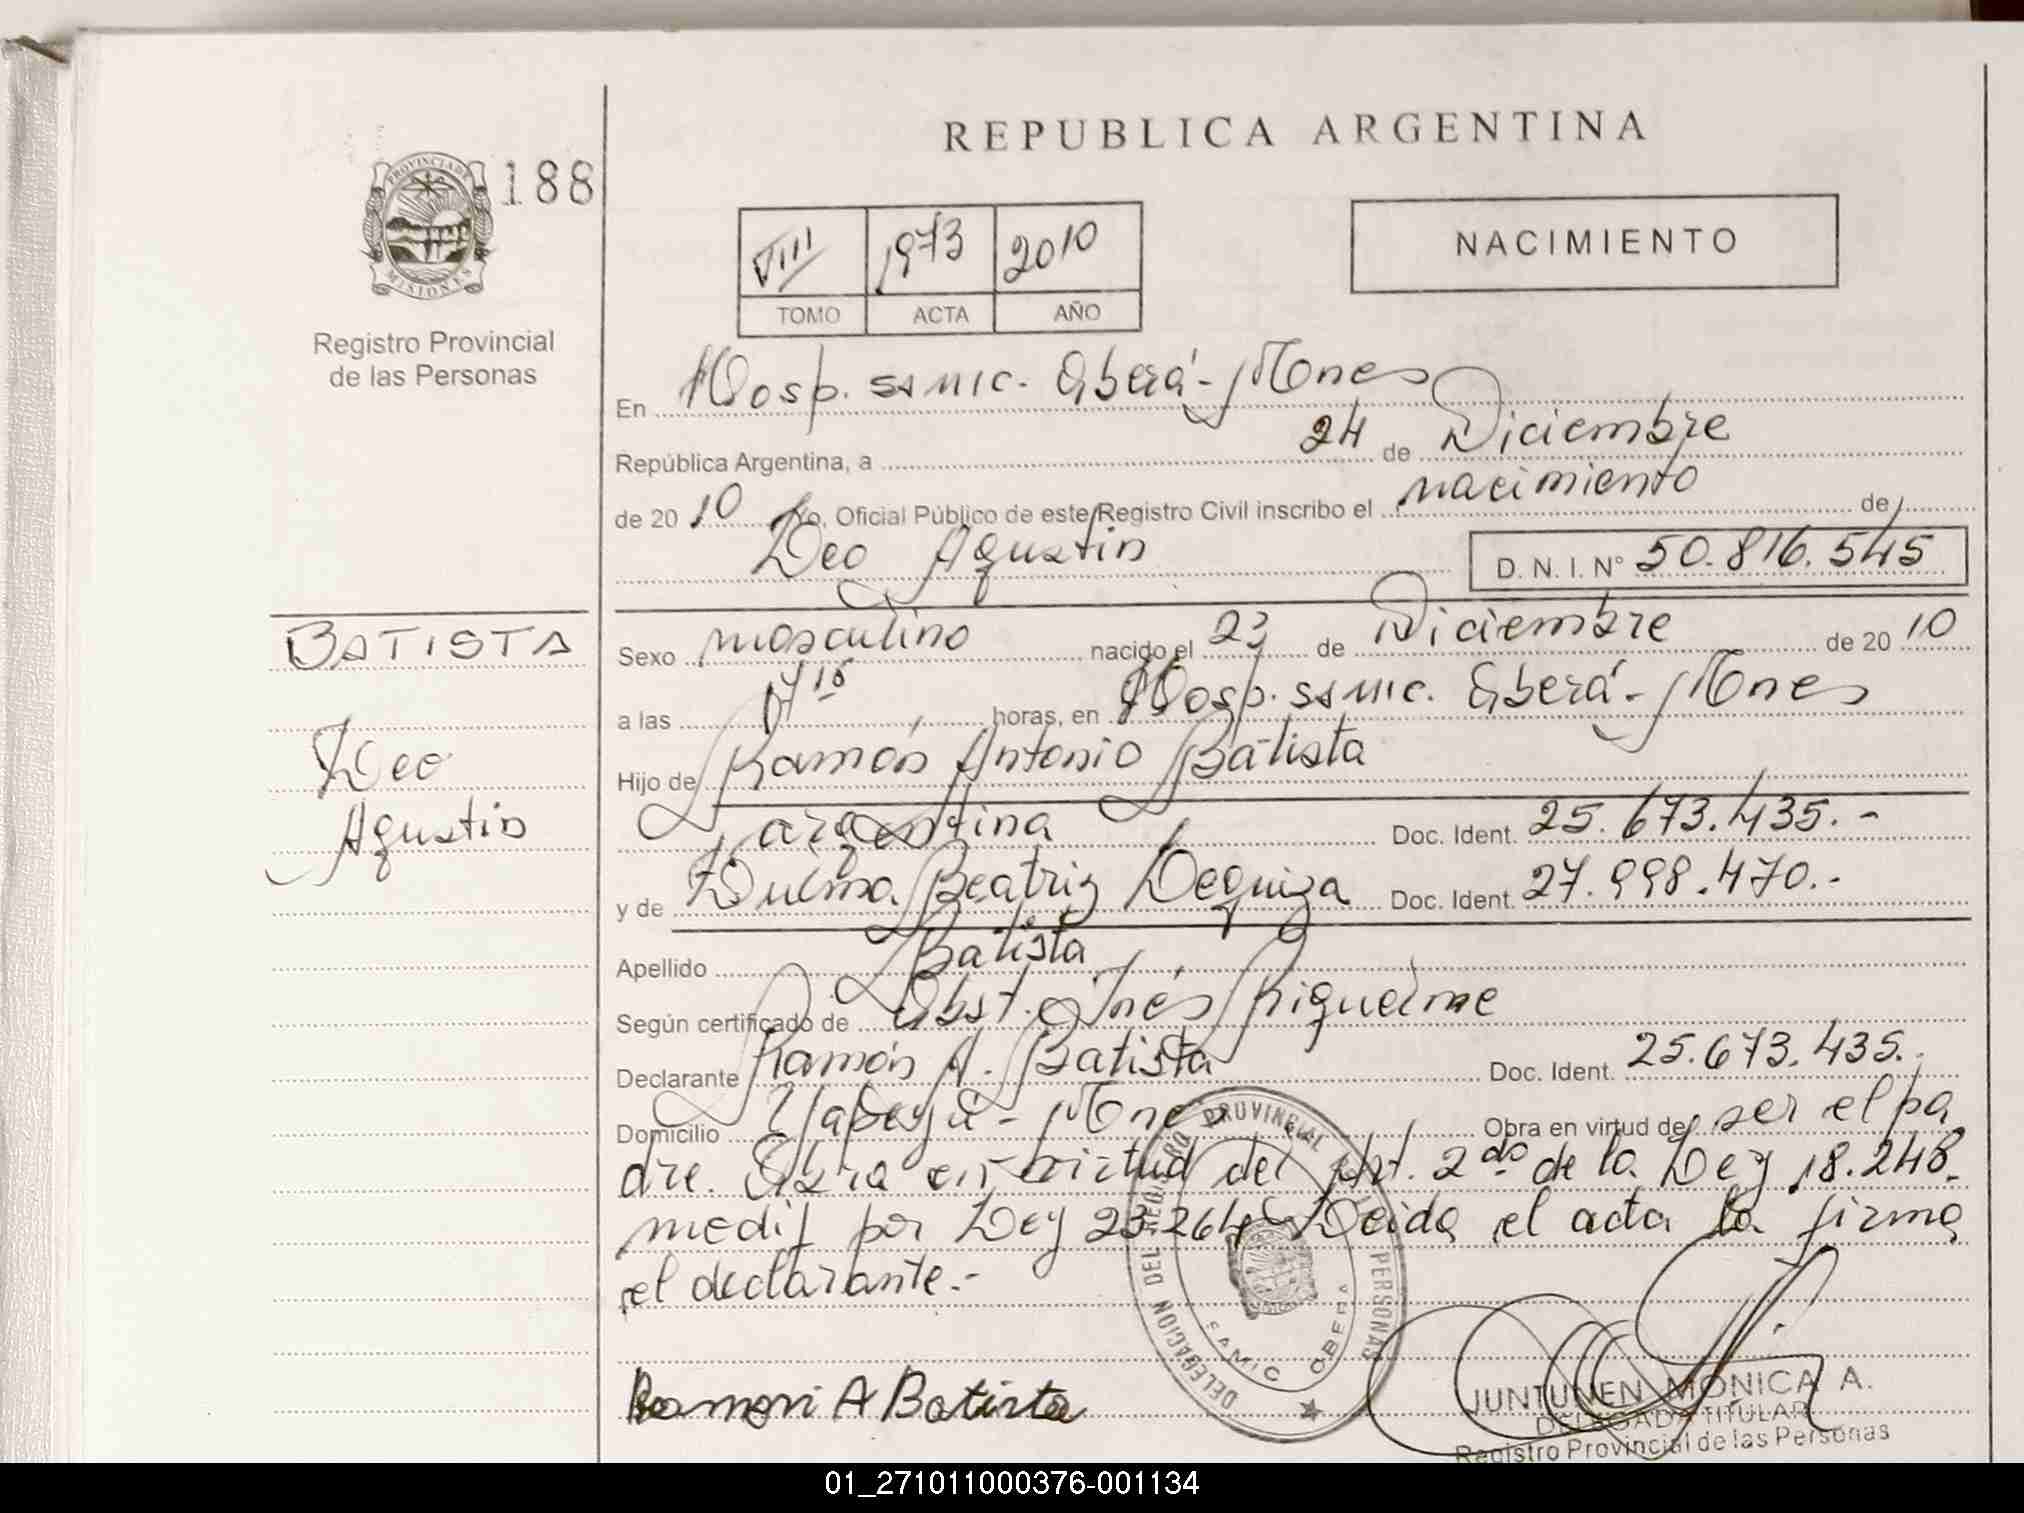 REPUBLICA ARGENTINA
PROVINCIA DE
MISIONES
188
Registro Provincial
de las Personas
VIII 1973 2010
TOMO ACTA AÑO
NACIMIENTO
En Hosp. SAMIC. Oberá - Mnes
República Argentina, a 24 de Diciembre
de 2010 Yo, Oficial Público de este Registro Civil inscribo el nacimiento de
Leo Agustin D. N. I. N° 50.816.545
BATISTA
Leo
Agustin
Sexo masculino nacido el 23 de Diciembre de 2010
a las horas, en Hosp. SAMIC. Oberá - Mnes
Hijo de Ramón Antonio Batista
argentina Doc. Ident. 25.673.435.-
y de Beatriz Doc. Ident. 27.998.470.-
Apellido Batista
Según certificado de Obst. Inés Riquelme
Declarante Ramón A. Batista Doc. Ident. 25.673.435.
Domicilio Yapeyú - Mnes Obra en virtud de ser el pa
dre. Obra en virtud del Art. 2do de la Ley 18.248
modif por Ley 23.264 Leida el acta la firma
el declarante.-
DELEGACION DEL REGISTRO PROVINCIAL PERSONAS
SAMIC OBERA
Ramon A Batista
JUNTUNEN MONICA A.
DELEGADA TITULAR
Registro Provincial de las Personas
01_271011000376-001134